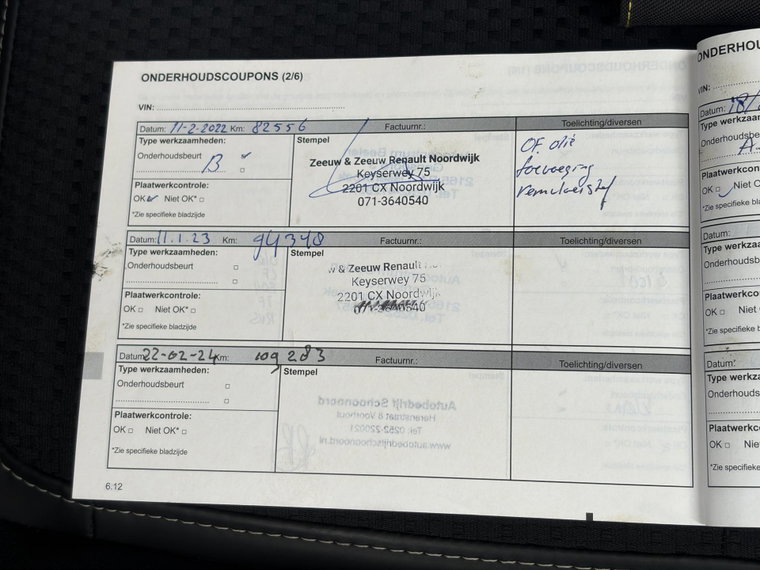 ONDERHOUDSCOUPONS (2/6)
VIN:
Datum: 11-2-2022 Km: 82556 Factuurnr.: Toelichting/diversen
Type werkzaamheden:
Onderhoudsbeurt B
Plaatwerkcontrole:
OK Niet OK*
*Zie specifieke bladzijde
Stempel
Zeeuw & Zeeuw Renault Noordwijk
Keyserwey 75
2201 CX Noordwijk
071-3640540
OF. olie
toevoeging
remvloeistof
Datum: 11.1.23 Km: 94348 Factuurnr.: Toelichting/diversen
Type werkzaamheden:
Onderhoudsbeurt
Plaatwerkcontrole:
OK Niet OK*
*Zie specifieke bladzijde
Stempel
& Zeeuw Renault
Keyserwey 75
2201 CX Noordwijk
Datum: 22-02-24 Km: 109283 Factuurnr.: Toelichting/diversen
Type werkzaamheden:
Onderhoudsbeurt
Plaatwerkcontrole:
OK Niet OK*
*Zie specifieke bladzijde
Stempel
Autobedrijf Schoonoord
Herenstraat 8 Voorhout
Tel: 0252-220021
www.autobedrijfschoonoord.nl
6.12
ONDERHOU
VIN:
Datum: 18/
Type werkzaam
Onderhoudsbe
A
Plaatwerkcont
OK Niet O
*Zie specifieke bl
Datum:
Type werkza
Onderhoudsb
Plaatwerkcon
OK Niet O
*Zie specifieke
Datum:
Type werkz
Onderhouds
Plaatwerkc
OK Nie
*Zie specifiek